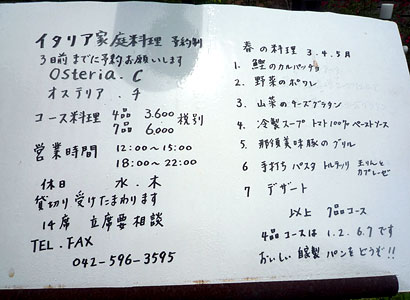 イタリア家庭料理 予約制
3日前までに予約お願いします
Osteria. C
オステリア . チ
コース料理 4品 3.600 税別
7品 6,000
営業時間 12:00〜15:00
18:00〜22:00
休日 水.木
貸切り受けたまわります
14席 立席要相談
TEL.FAX
042-596-3595
春の料理 3.4.5月
1. 鰹のカルパッチョ
2. 野菜のポワレ
3. 山菜のチーズグラタン
4. 冷製スープ トマト100% ペーストソース
5. 那須美味豚のグリル
6 手打ち パスタ トルテッリ
カプレーゼ
7 デザート
以上 7品コース
4品コースは 1.2.6.7です
おいしい自家製パンをどうぞ!!